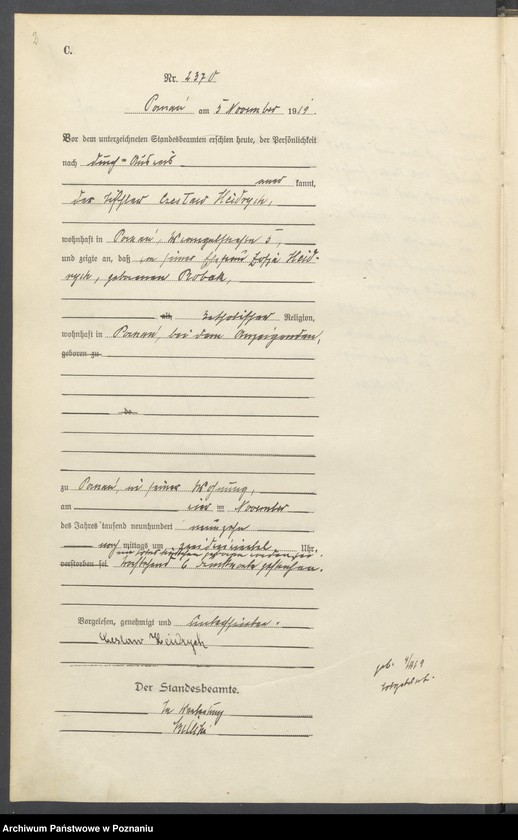 2
C.
Nr. 2370
Poznań am 5 November 1919.
Vor dem unterzeichneten Standesbeamten erschien heute, der Persönlichkeit
nach durch Ausweis
aner kannt,
der Tischler Czeslaw Heidrych,
wohnhaft in Poznań, Wrangelstraße 5,
und zeigte an, daß von seiner Ehefrau Zofja Heid-
rych, geborenen Robak,
alt, katholischer Religion,
wohnhaft in Poznań, bei dem Anzeigenden,
geboren zu
de
zu Poznań, in seiner Wohnung,
am vier ten November
des Jahres tausend neunhundert neunzehn
nach mittags um Uhr
ein totes Mädchen geboren worden sei.
verstorben sei. Vorstehend 6 Druckworte gestrichen.
Vorgelesen, genehmigt und unterschrieben.
Czeslaw Heidrych
Der Standesbeamte.
In Vertretung
geb. 4/11 19
totgeb.
Archiwum Państwowe w Poznaniu